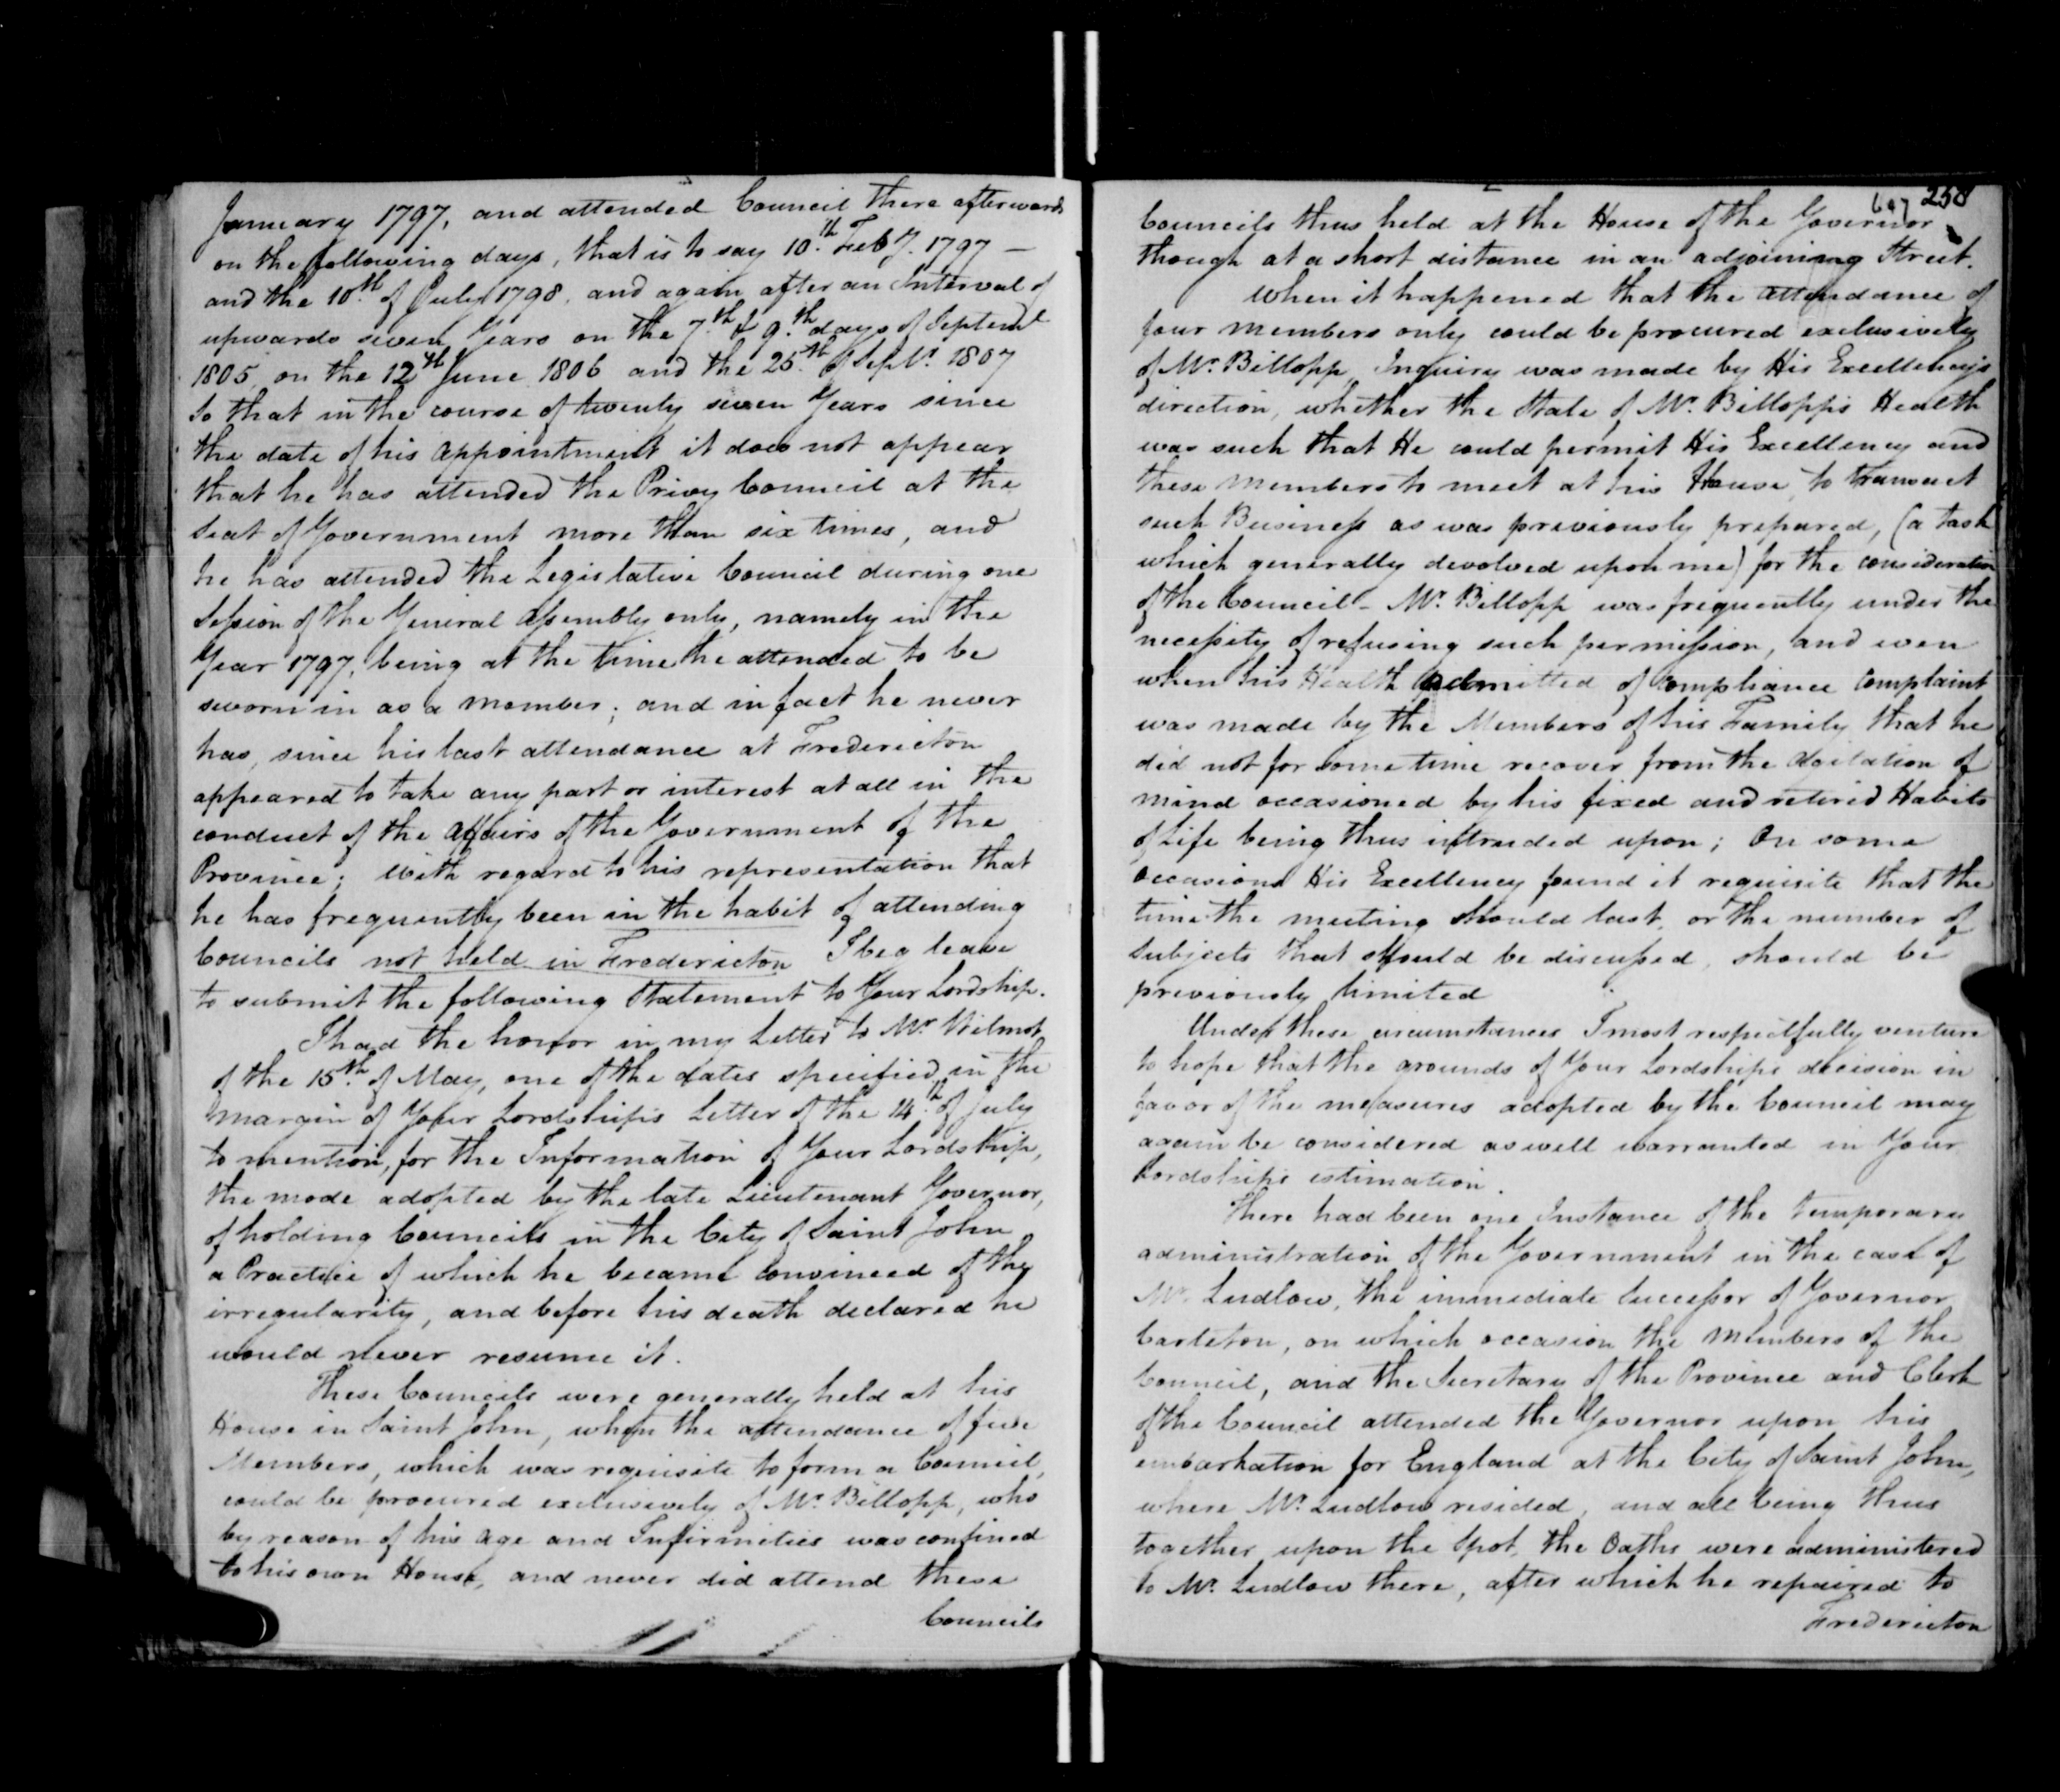 January 1797, and attended Council there afterwards
on the following days, that is to say 10.th Feby. 1797 —
and the 10.th of July 1798, and again after an Interval of
upwards seven Years on the 7.th & 9.th days of Septembr
1805, on the 12th June 1806 and the 25.th of Septr. 1807
So that in the course of twenty seven Years since
the date of his appointment it does not appear
that he has attended the Privy Council at the
Seat of Government more than six times, and
he has attended the Legislative Council during one
Session of the General Assembly only, namely in the
Year 1797, being at the time he attended to be
sworn in as a member; and in fact he never
has, since his last attendance at Fredericton
appeared to take any part or interest at all in the
conduct of the Affairs of the Government of the
Province; With regard to his representation that
he has frequently been in the habit of attending
Councils not held in Fredericton I beg leave
to submit the following Statement to Your Lordship.
I had the honor in my Letter to Mr. Wilmot
of the 15th. of May, one of the dates specified in the
margin of Your Lordship's Letter of the 14.th of July
to mention, for the Information of Your Lordship,
the mode adopted by the late Lieutenant Governor,
of holding Councils in the City of Saint John
a Practice of which he became convinced of the
irregularity, and before his death declared he
would never resume it.
These Councils were generally held at his
House in Saint John, when the attendance of five
Members, which was requisite to form a Council,
could be procured exclusively of Mr. Billopp, who
by reason of his age and Infirmities was confined
to his own House, and never did attend these
Councils
258
Councils thus held at the House of the Governor
though at a short distance in an adjoining Street.
When it happened that the attendance of
four members only could be procured exclusively
of Mr. Billopp, Inquiry was made by His Excellency's
direction, whether the State of Mr. Billopp's Health
was such that He could permit His Excellency and
these Members to meet at his House, to transact
such Business as was previously prepared, (a task
which generally devolved upon me) for the consideration
of the Council - Mr. Billopp was frequently under the
necessity of refusing such permission, and even
when his Health admitted of compliance complaint
was made by the Members of his Family that he
did not for some time recover from the Agitation of
mind occasioned by his fixed and retired Habits
of Life being thus intruded upon; On some
occasions His Excellency found it requisite that the
time the meeting should last, or the number of
subjects that should be discussed, should be
previously limited
Under these circumstances I most respectfully venture
to hope that the grounds of Your Lordships decision in
favor of the measures adopted by the Council may
again be considered as well warranted in Your
Lordships estimation.
There had been one Instance of the temporary
administration of the Government in the case of
Mr. Ludlow, the immediate Successor of Governor
Carleton, on which occasion the Members of the
Council, and the Secretary of the Province and Clerk
of the Council attended the Governor upon his
embarkation for England at the City of Saint John,
where Mr. Ludlow resided, and all being thus
together upon the Spot, the Oaths were administered
to Mr. Ludlow there, after which he repaired to
Fredericton